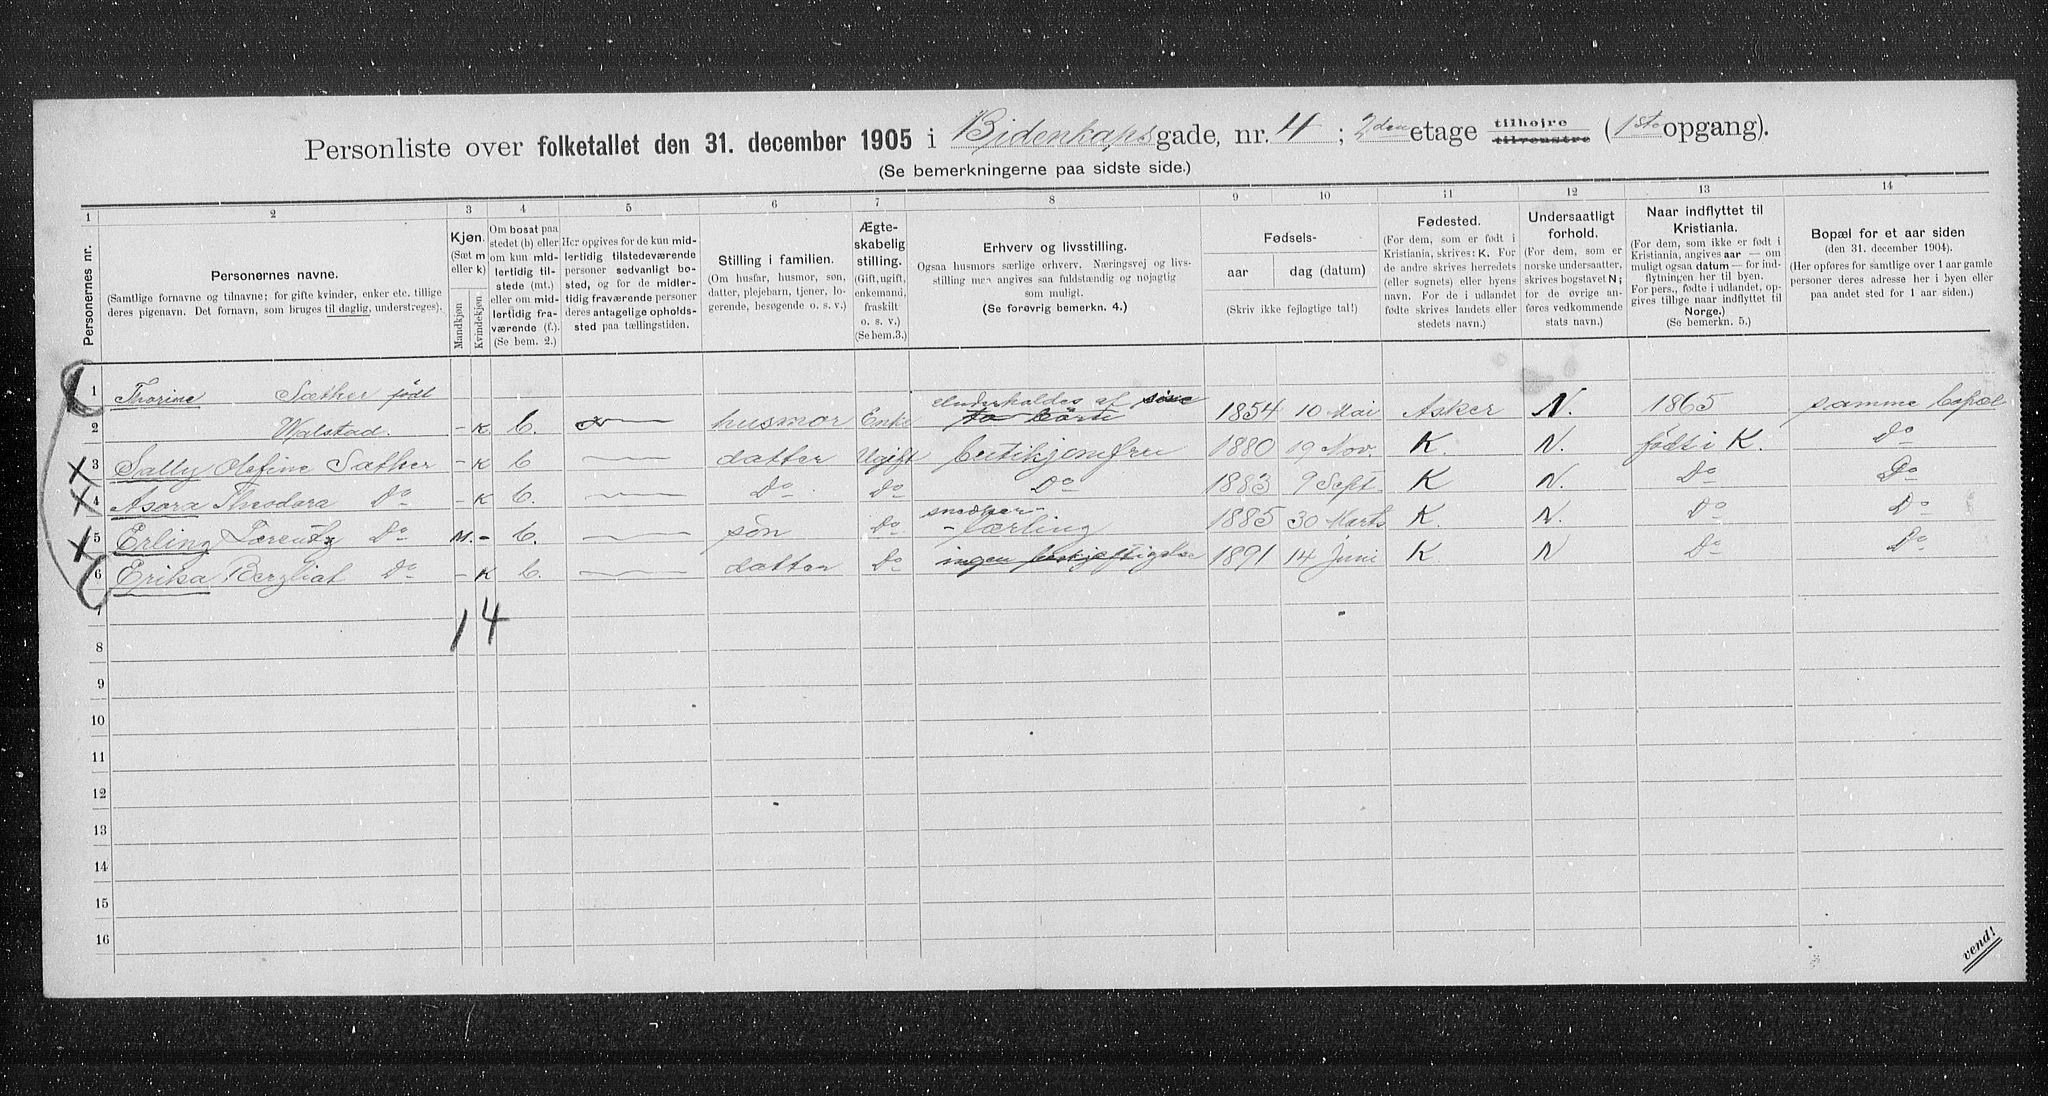 Personliste over folketallet den 31. december 1905 i Bidenkapsgade, nr. 4; 2den etage tilhøjre tilvenstre (1ste opgang).
(Se bemerkningerne paa sidste side.)
1 2 3 4 5 6 7 8 9 10 11 12 13 14
Personernes nr.
Personernes navne.
(Samtlige fornavne og tilnavne; for gifte kvinder, enker etc. tillige
deres pigenavn. Det fornavn, som bruges til daglig, understreges).
Kjøn.
(Sæt m
eller k)
Mandkjøn.
Kvindekjøn.
Om bosat paa
stedet (b) eller
om kun mid-
lertidig til-
stede (mt.)
eller om mid-
lertidig fra-
værende (f.).
(Se bem. 2.)
Her opgives for de kun mid-
lertidig tilstedeværende
personer sedvanligt bo-
sted, og for de midler-
tidig fraværende personer
deres antagelige opholds-
sted paa tællingstiden.
Stilling i familien.
(Om husfar, husmor, søn,
datter, plejebarn, tjener, lo-
gerende, besøgende o. s. v.)
Ægte-
skabelig
stilling.
(Gift, ugift,
enkemand,
fraskilt
o. s. v.)
(Se bem.3.)
Erhverv og livsstilling.
Ogsaa husmors særlige erhverv. Næringsvej og livs-
stilling maa angives saa fuldstændig og nøjagtig
som muligt.
(Se forøvrig bemerkn. 4.)
Fødsels-
aar dag (datum)
(Skriv ikke fejlagtige tal!)
Fødested.
(For dem, som er født i
Kristiania, skrives: K. For
de andre skrives herredets
(eller sognets) eller byens
navn. For de i udlandet
fødte skrives landets eller
stedets navn.)
Undersaatligt
forhold.
(For dem, som er
norske undersaatter,
skrives bogstavet N;
for de øvrige an-
føres vedkommende
stats navn.)
Naar indflyttet til
Kristiania.
(For dem, som ikke er født i
Kristiania, angives aar — om
muligt ogsaa datum — for ind-
flytningen her til byen.
For pers., fødte i udlandet, op-
gives tillige naar indflyttet til
Norge.)
(Se bemerkn. 5.)
Bopæl for et aar siden
(den 31. december 1904).
(Her opføres for samtlige over 1 aar gamle
personer deres adresse her i byen eller
paa andet sted for 1 aar siden.)
1 Thorine Sæther født underholdes af sine
2 Walstad. - K b. husmor Enke to börn 1854 10 Mai Asker N. 1865 samme bopæl
3 Sally Olefine Sæther - K b datter Ugift butikjomfru 1880 19 Nov. K. N. født i K. Do
4 Asora Theodora Do - K b. Do Do Do 1883 9 Sept. K N. Do Do
5 Erling Lorentz Do M. - b. sön Do. snedker- lærling 1885 30 Marts K. N. Do Do
6 Erika Bergliot Do - K b. datter Do ingen beskjæftigelse 1891 14 Juni K N Do Do
7
1 4
8
9
10
11
12
13
14
15
16
vend!